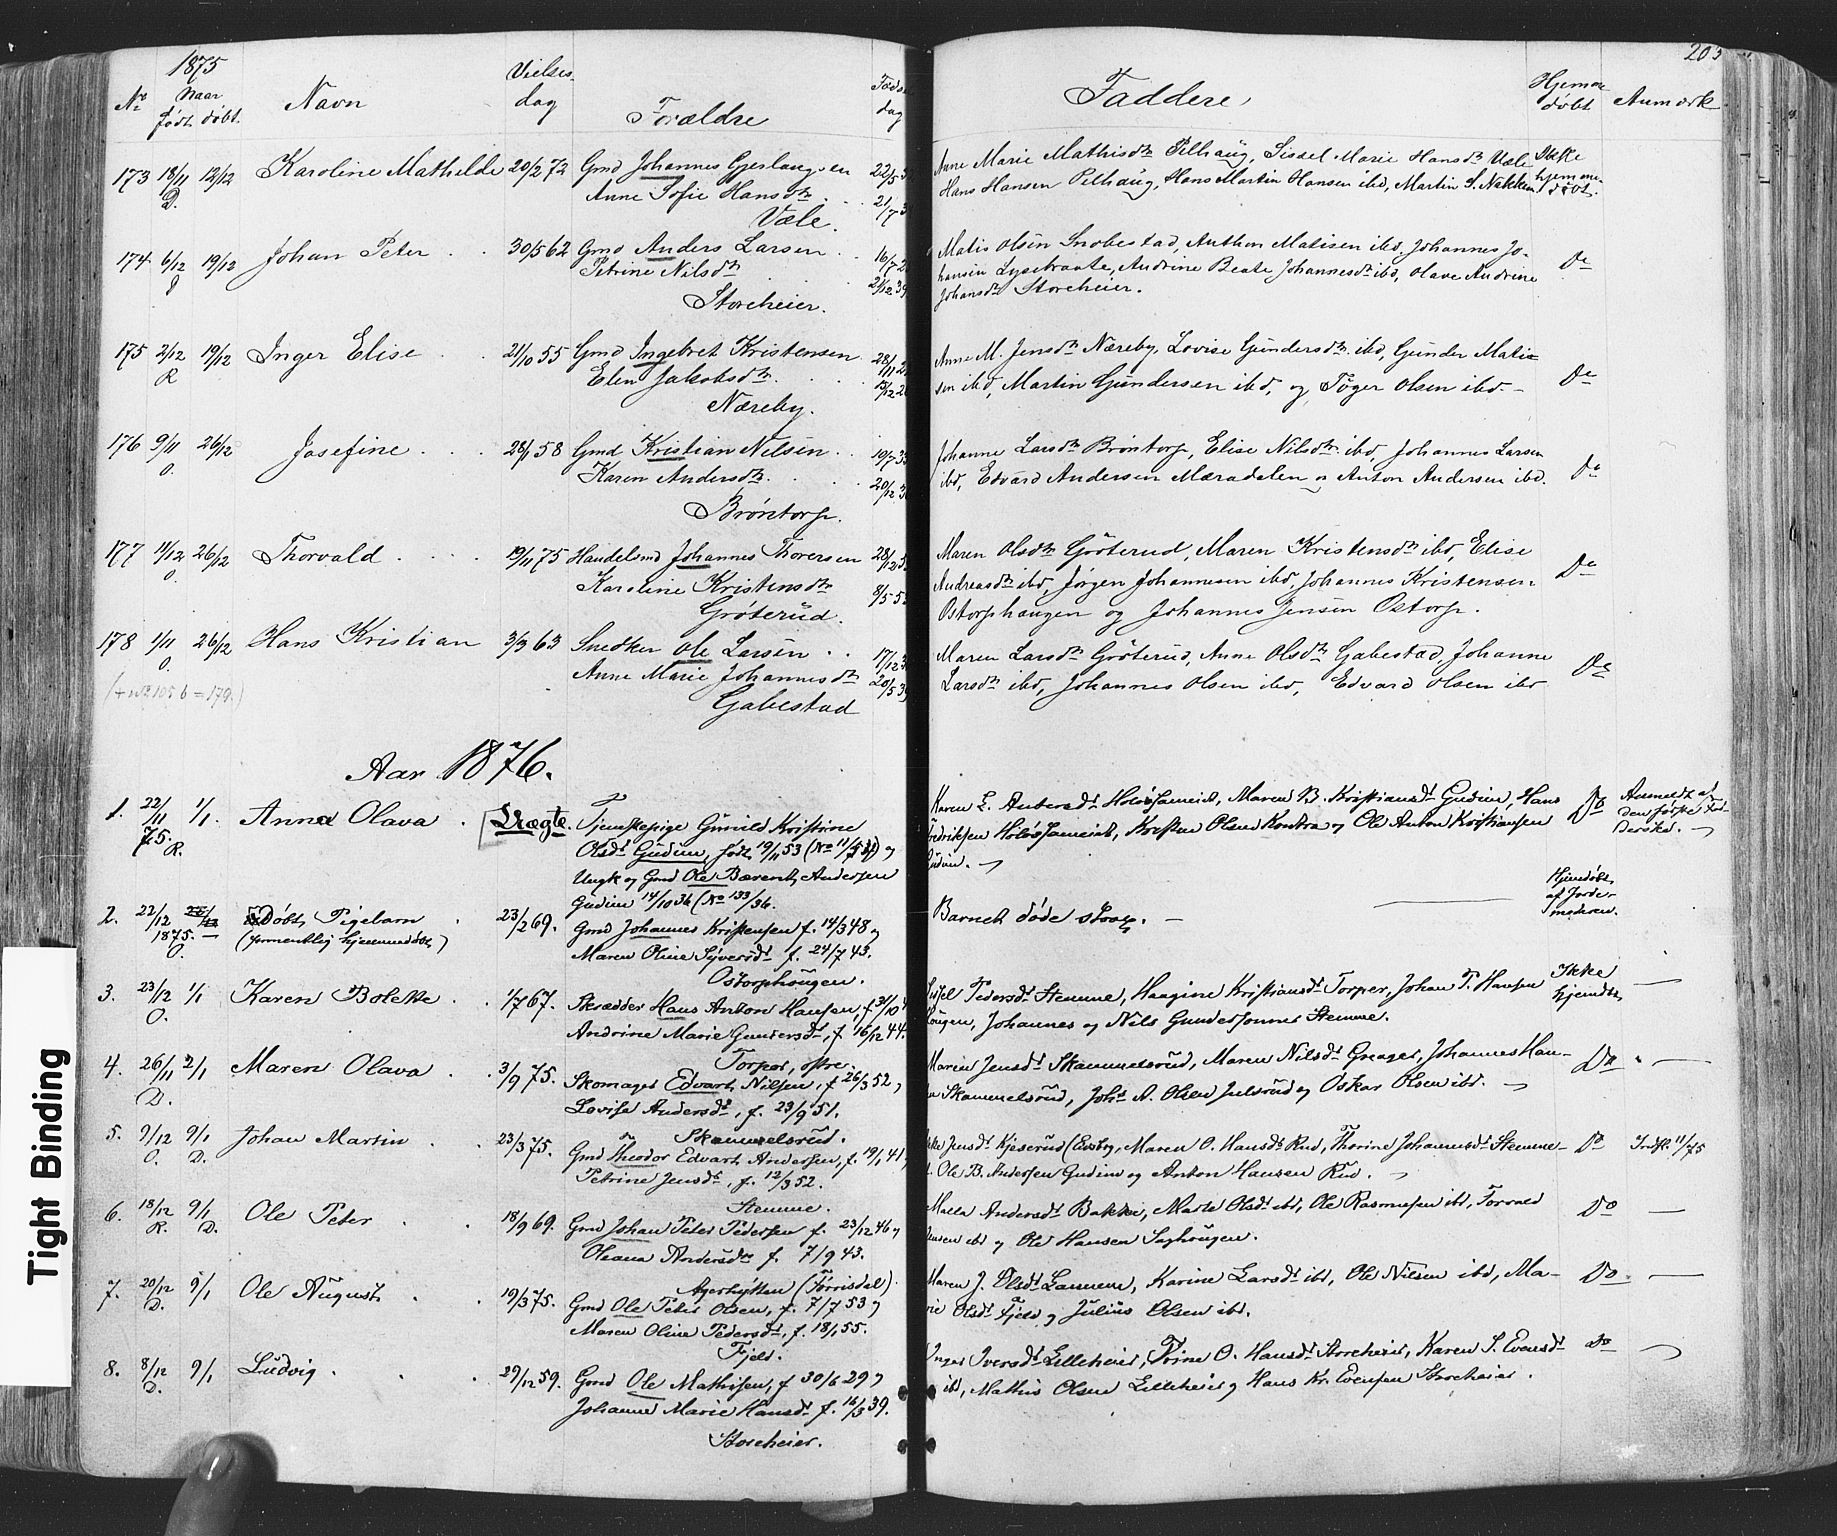 1875
No Naar født. døbt. Navn Vielses-dag Forældre Føds. dag
Faddere Hjemmedøbt Anmærk
203
173 18/11 12/12 Karoline Mathilde 20/2 72 Gmd Johannes Gjerlaugsen 22/5
D. Anne Sofie Hansdtr . . 21/7
Vale.
Anne Marie Mathisdtr Pilhaug, Sissel Marie Hansdtr Vale Ikke
Hans Hansen Pilhaug, Hans Martin Hansen ibd, Martin S. Nakken hjemmedøbt.
174 6/12 19/12 Johan Peter . . 30/5 62 Gmd Anders Larsen . . 16/7
Petrine Nilsdtr
Storeheier.
Matis Olsen Snobestad, Anthon Matisen ibd, Johannes Jo-
hansen Lysebraate, Andrine Beate Johannesdtr ibd, Olave Andrine Do
Johansdtr Storeheier.
175 2/12 19/12 Inger Elise . . 21/10 55 Gmd Ingebret Kristensen 28/11
R Elen Jakobsdtr. . . . 15/12
Næreby.
Anne M. Jensdtr Næreby, Lovise Gundersdtr ibd, Gunder Mati-
sen ibd, Martin Gundersen ibd, og Tøger Olsen ibd. - Do
176 9/11 26/12 Josefine . . . 28/1 58 Gmd Kristian Nilsen . . 19/7
O. Karen Andersdtr. . . . 20/12
Brøntorp.
Johanne Larsdtr Brøntorp, Elise Nilsdtr ibd, Johannes Larsen
ibd, Edvard Andersen Mæradalen og Anton Andersen ibd. Do
177 11/12 26/12 Thorvald . . . 19/11 75 Handelsmd Johannes Thoresen 28/12
O. Karoline Kristensdtr 8/5
Grøterud.
Maren Olsdtr Grøterud, Maren Kristensdtr ibd, Elise
Andreasdtr ibd, Jørgen Johannesen ibd, Johannes Kristensen Do
Ostorphaugen og Johannes Jensen Ostorp.
178 1/11 26/12 Hans Kristian 3/3 63 Snedker Ole Larsen . . 17/12
O. Anne Marie Johannesdtr 20/5
(+ No 105 b = 179.) Gabestad
Maren Larsdtr Grøterud, Anne Olsdtr Gabestad, Johanne
Larsdtr ibd, Johannes Olsen ibd, Edvard Olsen ibd Do
Aar 1876.
1. 22/11 75. 1/1. Anna Olava . Uægte. Tjenestepige Gunild Kristine
R. Olsdr Gudim, født 19/11 53 og
Ungk og Gmd Ole Bærent Andersen
Gudim 14/10 36 (No 133/36.
Karen L. Andersdr Holøssameiet, Maren B. Kristiansdr Gudim, Hans Do Anmeldt af
Fredriksen Holøssameiet, Kresten Olsen Kontra og Ole Anton Kristiansen
Gudim.
2. 22/12 1875. Udøbt Pigebarn . 23/2 69. Gmd Johannes Kristensen f. 14/3 48 og
O. (formentlig hjemmedøbt) Maren Oline Syversdr f. 24/7 43.
Ostorphougen.
Barnet døde strax. - Hjemdøbt af Jordemoderen.
3. 23/12 1/1 Karen Bolette . . 1/7 67. Skrædder Hans Anton Hansen, f. 31/10
O. Andrine Marie Gundersdr, f. 16/12 44.
Torper, østre.
Pedersdr Stemme, Haagine Kristiansdr Torper, Johan P. Hansen Ikke
Hougen, Johannes og Nils Gundersønner Stemme. hjemdbt,
4. 26/11 2/1 Maren Olava . . 3/9 75. Skomager Edvart Nilsen, f. 26/3 52,
D. Lovise Andersdr, f. 23/9 51.
Skammelsrud.
Maren Jensdr Skammelsrud, Maren Nilsdr Greager, Johannes Han- Do
Skammelsrud, Johs A. Olsen Julsrud og Oskar Olsen ibd.
5. 9/12 9/1 Johan Martin . . 23/3 75. Gmd Theodor Edvart Andersen, f. 19/1 41,
O. D. Petrine Jensdr, f. 12/3 52.
Stemme.
Jensdr Kjeserud (Edsby, Maren O. Hansdr Rud, Thorine Johannesdr Stemme- Do 11/75
Ole B. Andersen Gudim og Anton Hansen Rud.
6. 18/12 9/1 Ole Peter . . 18/9 69. Gmd Johan Peter Pedersen f. 23/12 46 og
R. D. Oleana Andersdr f. 7/9 43.
Agerhytten (Torrisdal).
Malla Andersdr Bakke, Marte Olsdr ibd, Ole Rasmusen ibd, Torvald Do
Jensen ibd og Ole Hansen Saghougen.
7. 20/12 9/1 Ole August . . 19/3 75. Gmd Ole Peter Olsen, f. 7/7 53 og
D. Maren Oline Pedersdr, f. 18/1 55.
Fjeld.
Maren J. Olsdr Lamme, Karine Larsdr ibd, Ole Nilsen ibd, Ma- Do.
rie Olsdr Fjeld og Julius Olsen ibd.
8. 8/12 9/1 Ludvig . . . 29/12 59. Gmd Ole Mathisen, f 30/6 29 og
D. Johanne Marie Hansdr f. 16/3 39.
Storeheier.
Inger Iversdr Lilleheier, Trine O. Hansdr Storeheier, Karen S. Evensdr Do
ibd, Mathis Olsen Lilleheier og Hans Kr. Evensen Storeheier.
Tight Binding